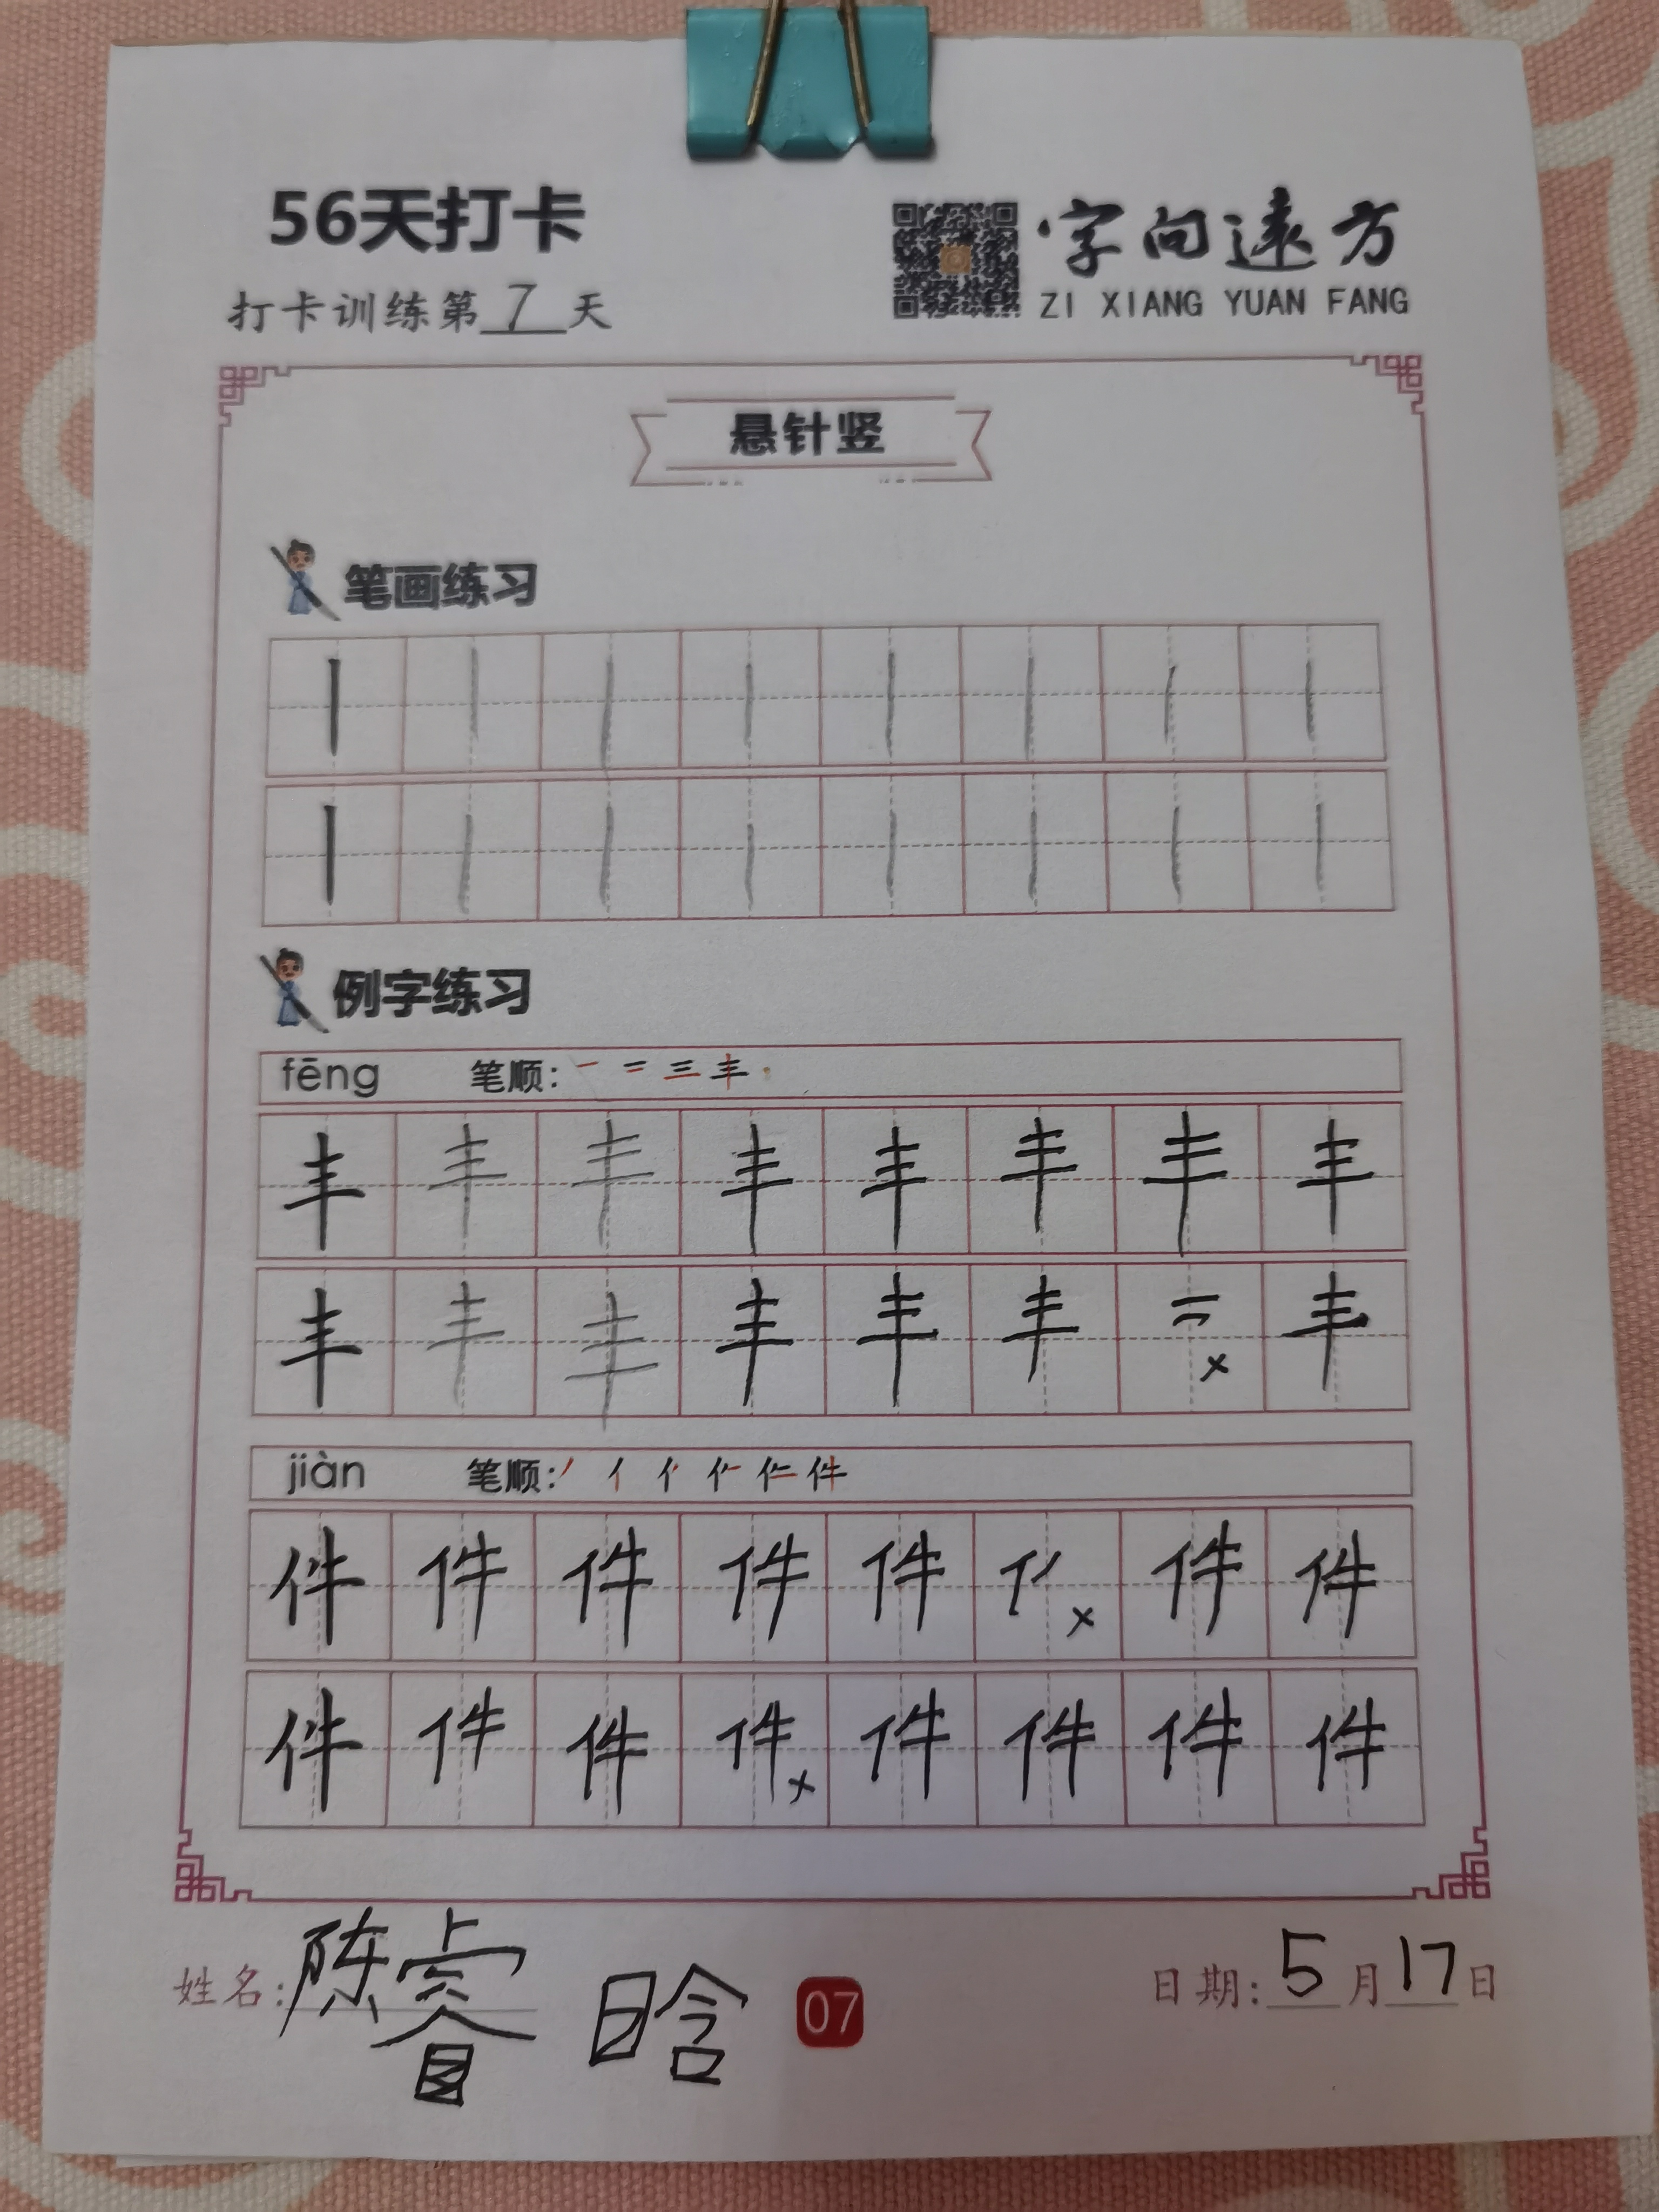 56天打卡
字向遠方
打卡训练第7天
ZI XIANG YUAN FANG
悬针竖
笔画练习
丨丨丨丨丨丨丨丨
丨丨丨丨丨丨丨丨
例字练习
fēng 笔顺: 一 二 三 丰
丰丰丰丰丰丰丰丰
丰丰丰丰丰丰二×丰
jiàn 笔顺: 丿 亻 件
件件件件件亻×件件
件件件件×件件件件
姓名: 陈睿晗
07
日期: 5月17日